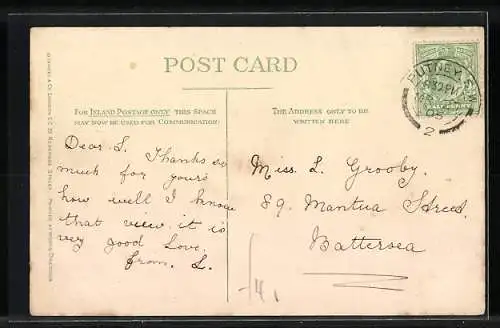 POST CARD
FOR INLAND POSTAGE ONLY THIS SPACE
MAY NOW BE USED FOR COMMUNICATION.
THE ADDRESS ONLY TO BE
WRITTEN HERE
PUTNEY
05
2
HALFPENNY
Dear L. Thanks so
much for yours
how well I know
that view, it is
very good Love.
from. L.
Miss. L. Grooby.
89. Mantua Street.
Battersea